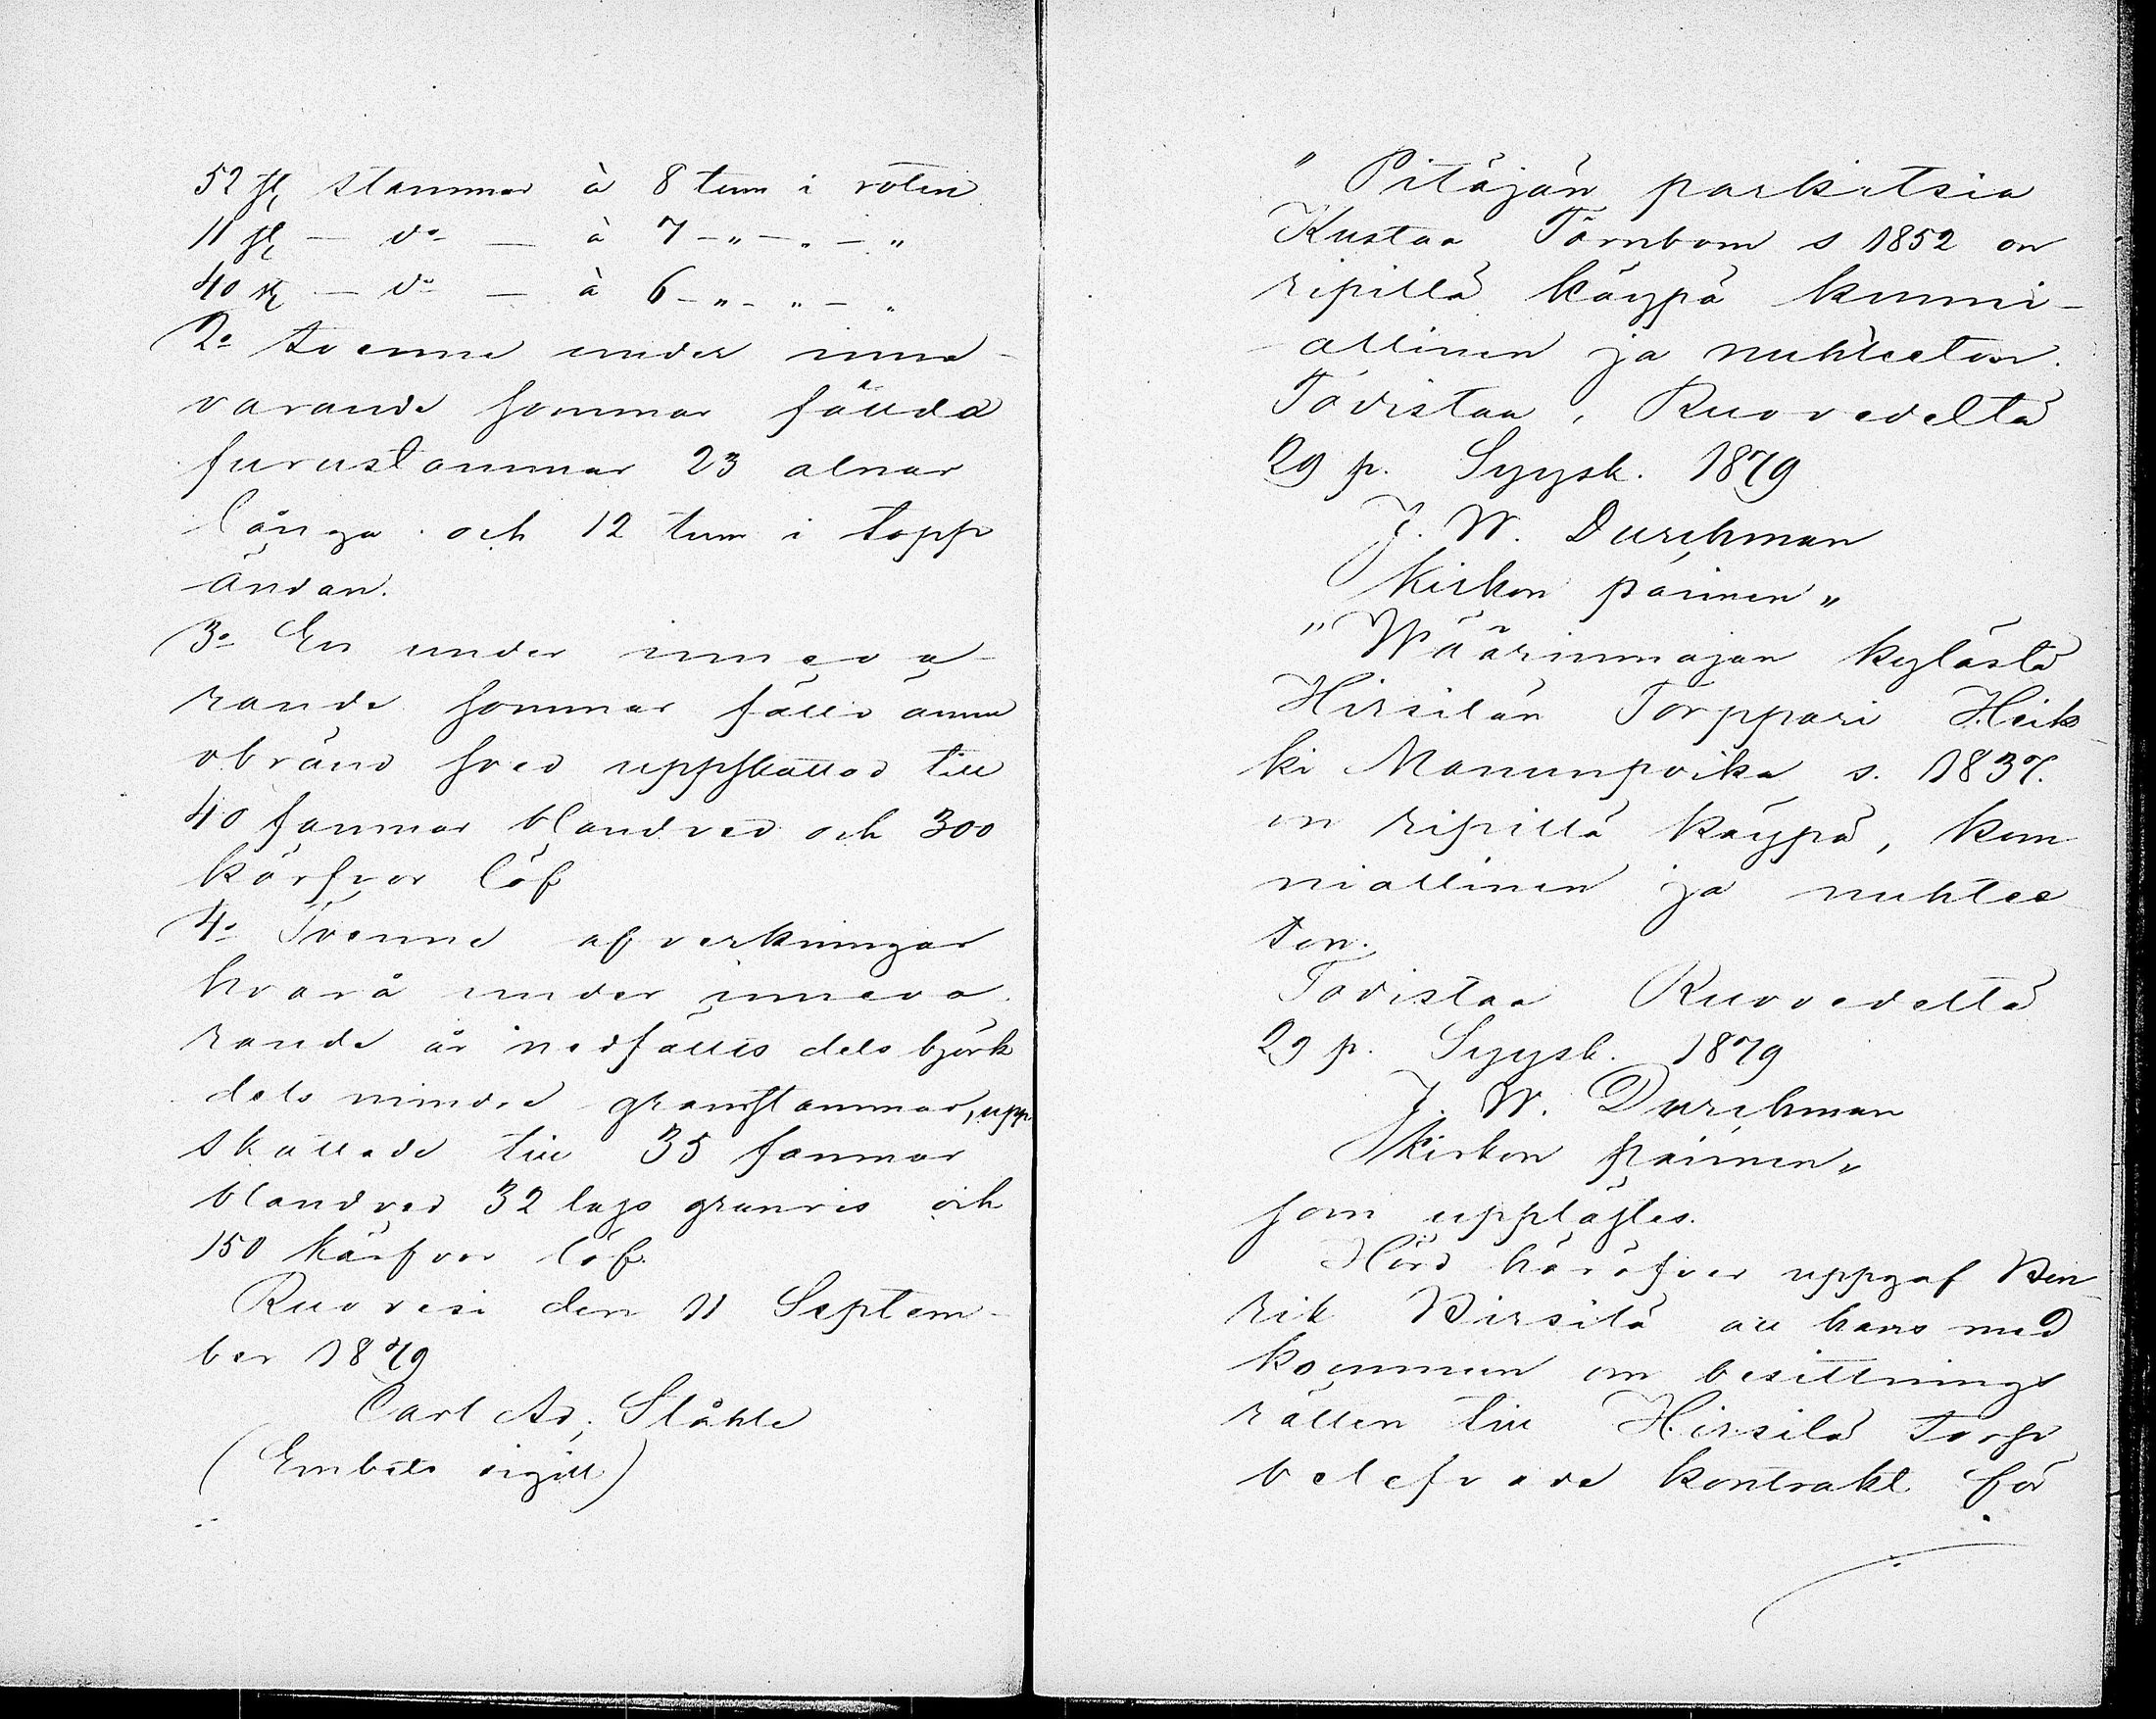 52 st, stammar à 8 tum i roten
11 st, — do — à 7 - „ - „ - „
40 st, — do — à 6 - „ - „ - „
2o Avenne under inne-
varande sommar fällda
furustammar 23 alnar
långa och 12 tum i topp
ändan.
3o En under inneva-
rande sommar fälld ännu
obränd sved uppskattad till
40 famnar blandved och 300
kärfvar löf
4o Tvenne afverkningar
hvarå under inneva-
rande år nedfällts dels björk
dels mindre granstammar, upp
skattade till 35 famnar
blandved 32 lass granris och
150 kärfvar löf.
Ruovesi den 11 Septem-
ber 1879
Carl Ad; Ståhle
(Embets sigill)
" Pitäjän parkitsia
Kustaa Törnbom s 1852 on
ripillä käypä kunni-
allinen ja nuhteeton.
Todistaa, Ruovedeltä
29 p. Syysk. 1879
J. W. Durchman
Kirkon paimen „
" Wäärinmajan kylästä
Hirsilän Torppari Heik-
ki Manunpoika s. 1837.
on ripillä käypä, kun
niallinen ja nuhtee
ton.
Todistaa Ruovedeltä
29 p. Syysk. 1879
J. W. Durchman
Kirkon paimen „
som upplästes.
Hörd häröfver uppgaf Hen-
rik Hirsilä att hans med
kommun om besittnings
rätten till Hirsilä torp
belefvade kontrakt för